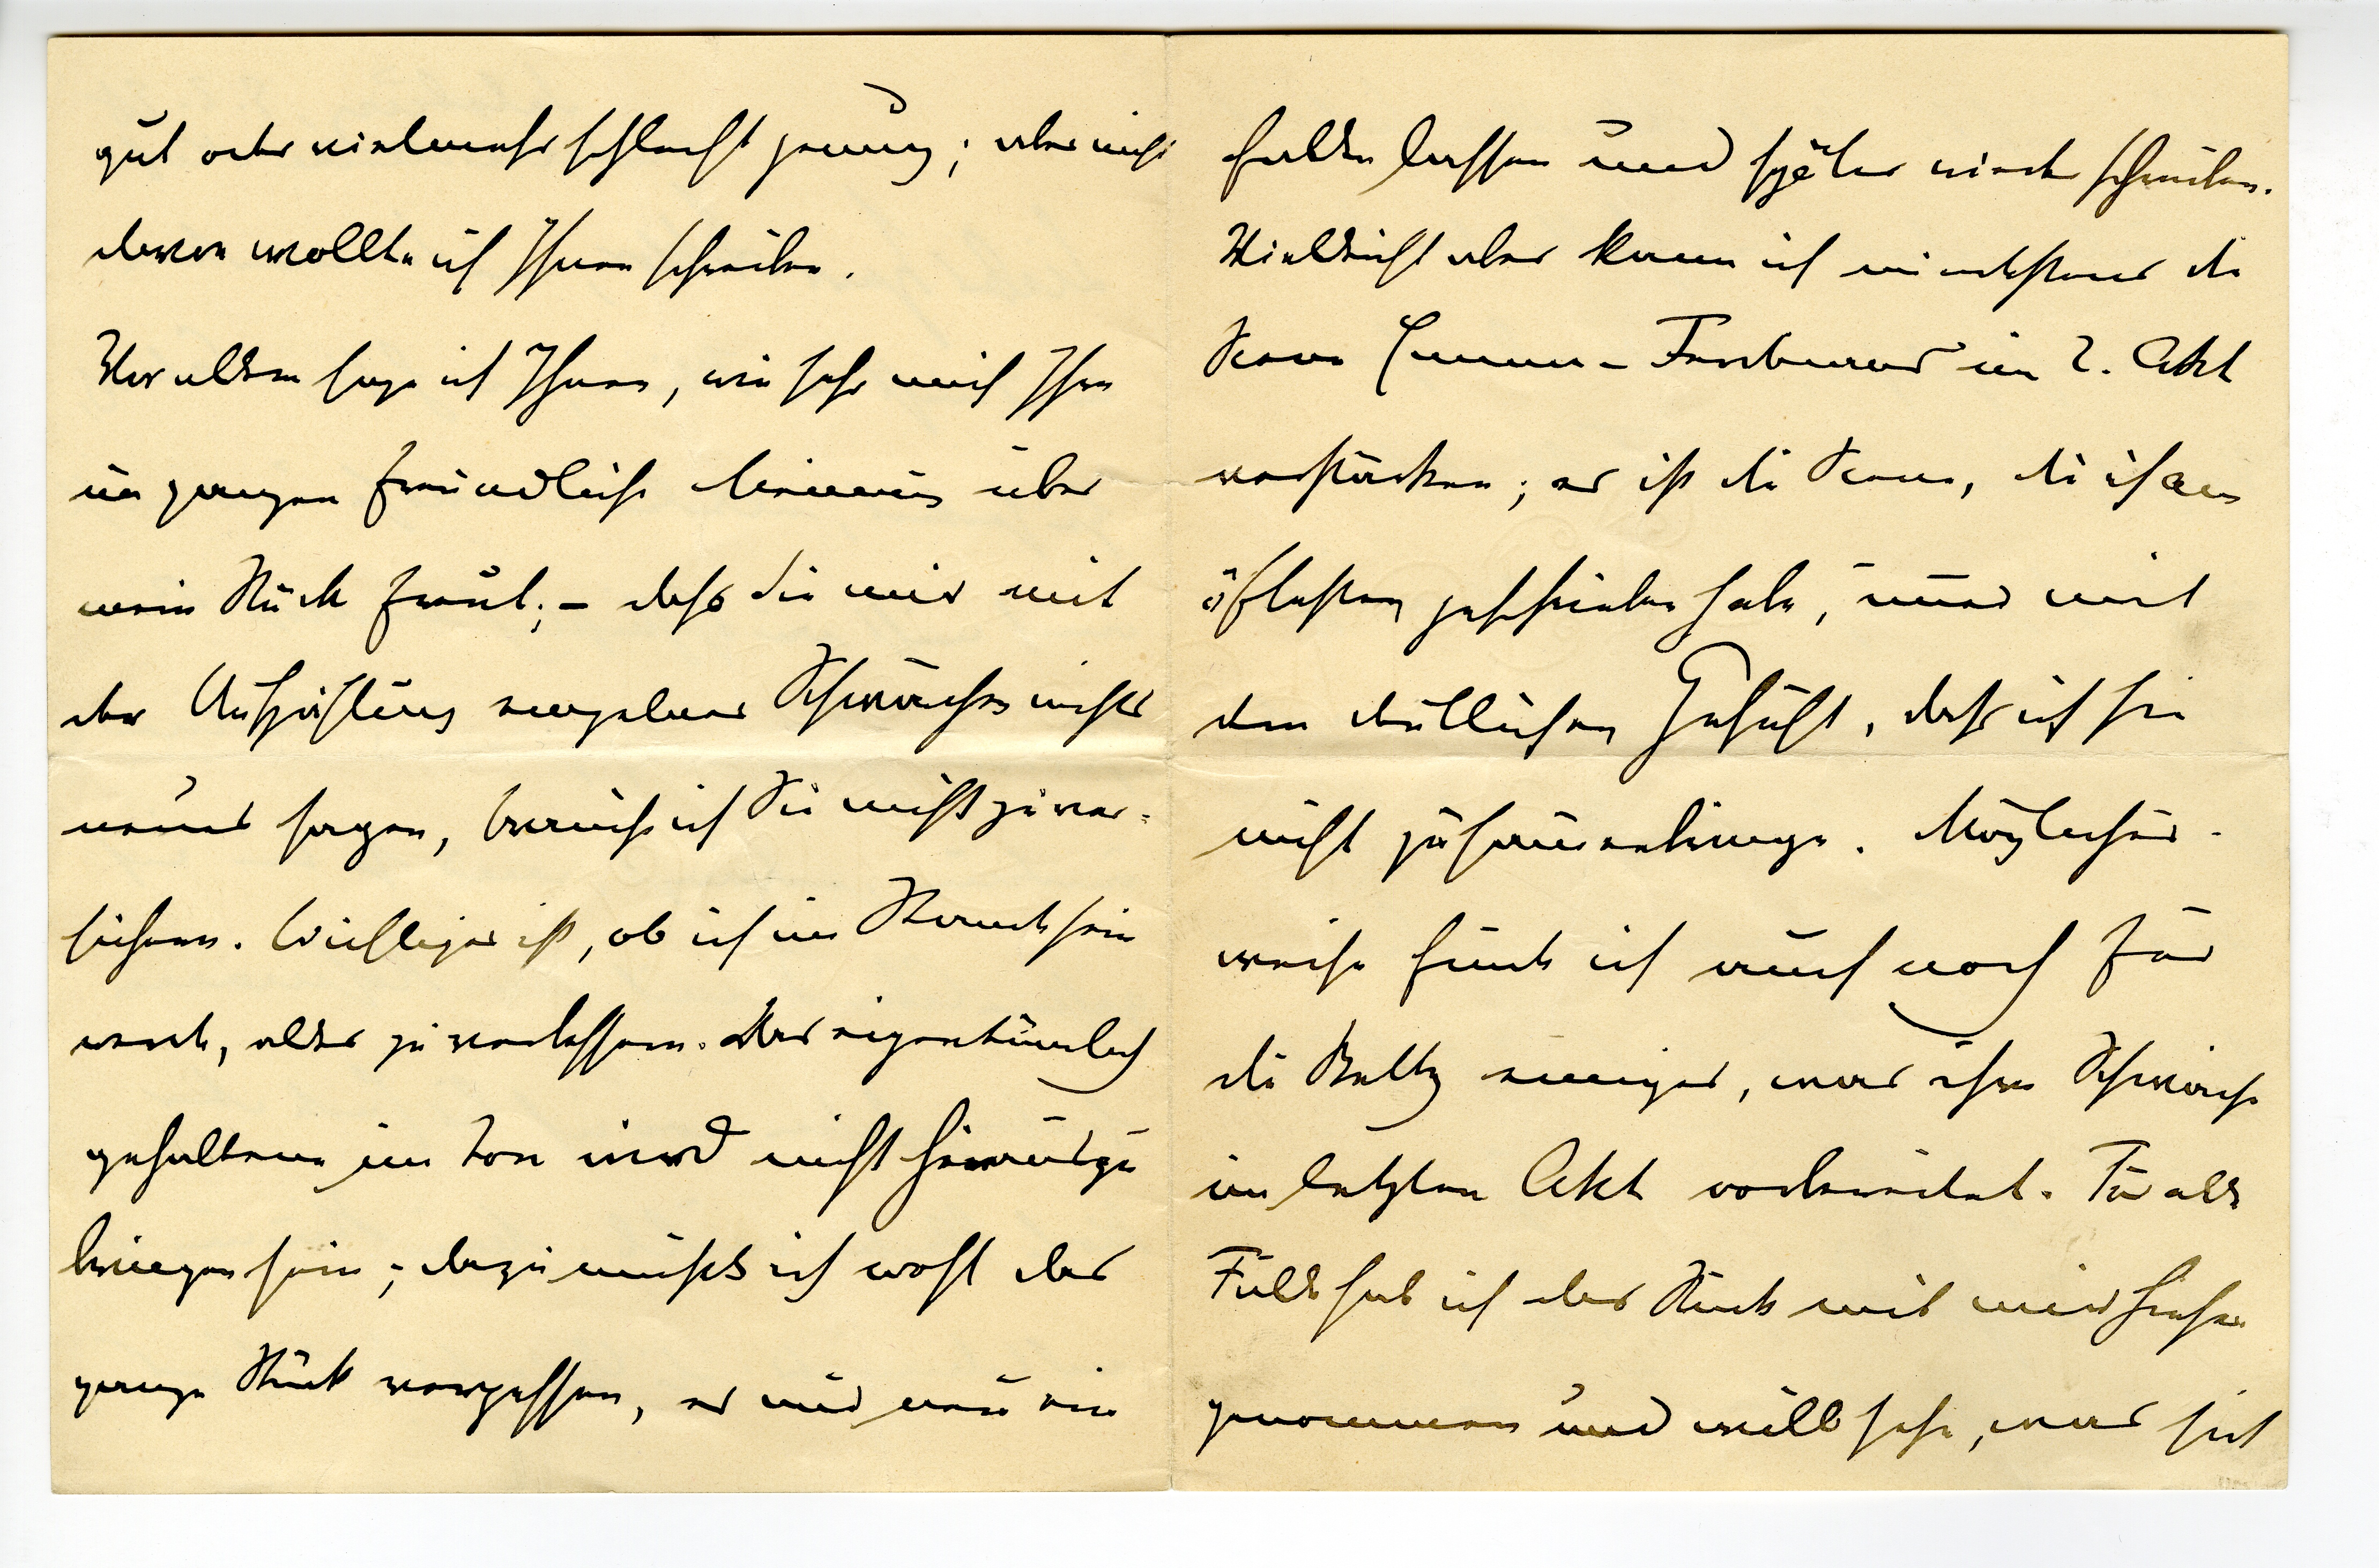 gut oder vielmehr schlecht genug; aber nicht
davon wollte ich Ihnen schreiben.
Vor allem sage ich Ihnen, wie sehr mich Ihre
im ganzen freundliche Meinung über
mein Stück freut; – daß Sie mir mit
der Aufzählung einzelner Schwächen nichts
neues sagen, brauche ich Sie nicht zu ver-
sichern. Wichtiger ist, ob ich im Stande sein
werde, alles zu verbessern. Das eigentümlich
gehaltene im Ton wird nicht herauszu
bringen sein; dazu müßte ich wohl das
ganze Stück vergessen, es mir neu ein
fallen lassen und später wieder schreiben.
Vielleicht aber kann ich mindestens die
Scene Emma – im 2. Akt
verstärken; es ist die Scene, die ich am
öftesten geschrieben habe, immer mit
dem deutlichen Gefühl, daß ich sie
nicht zusammenbringe. Möglicher-
weise finde ich auch noch für
die einiges, was ihre Schwäche
im letzten Akt vorbereitet. Für alle
Fälle hab ich das Stück mit mir hieher
genommen und will sehn, was sich